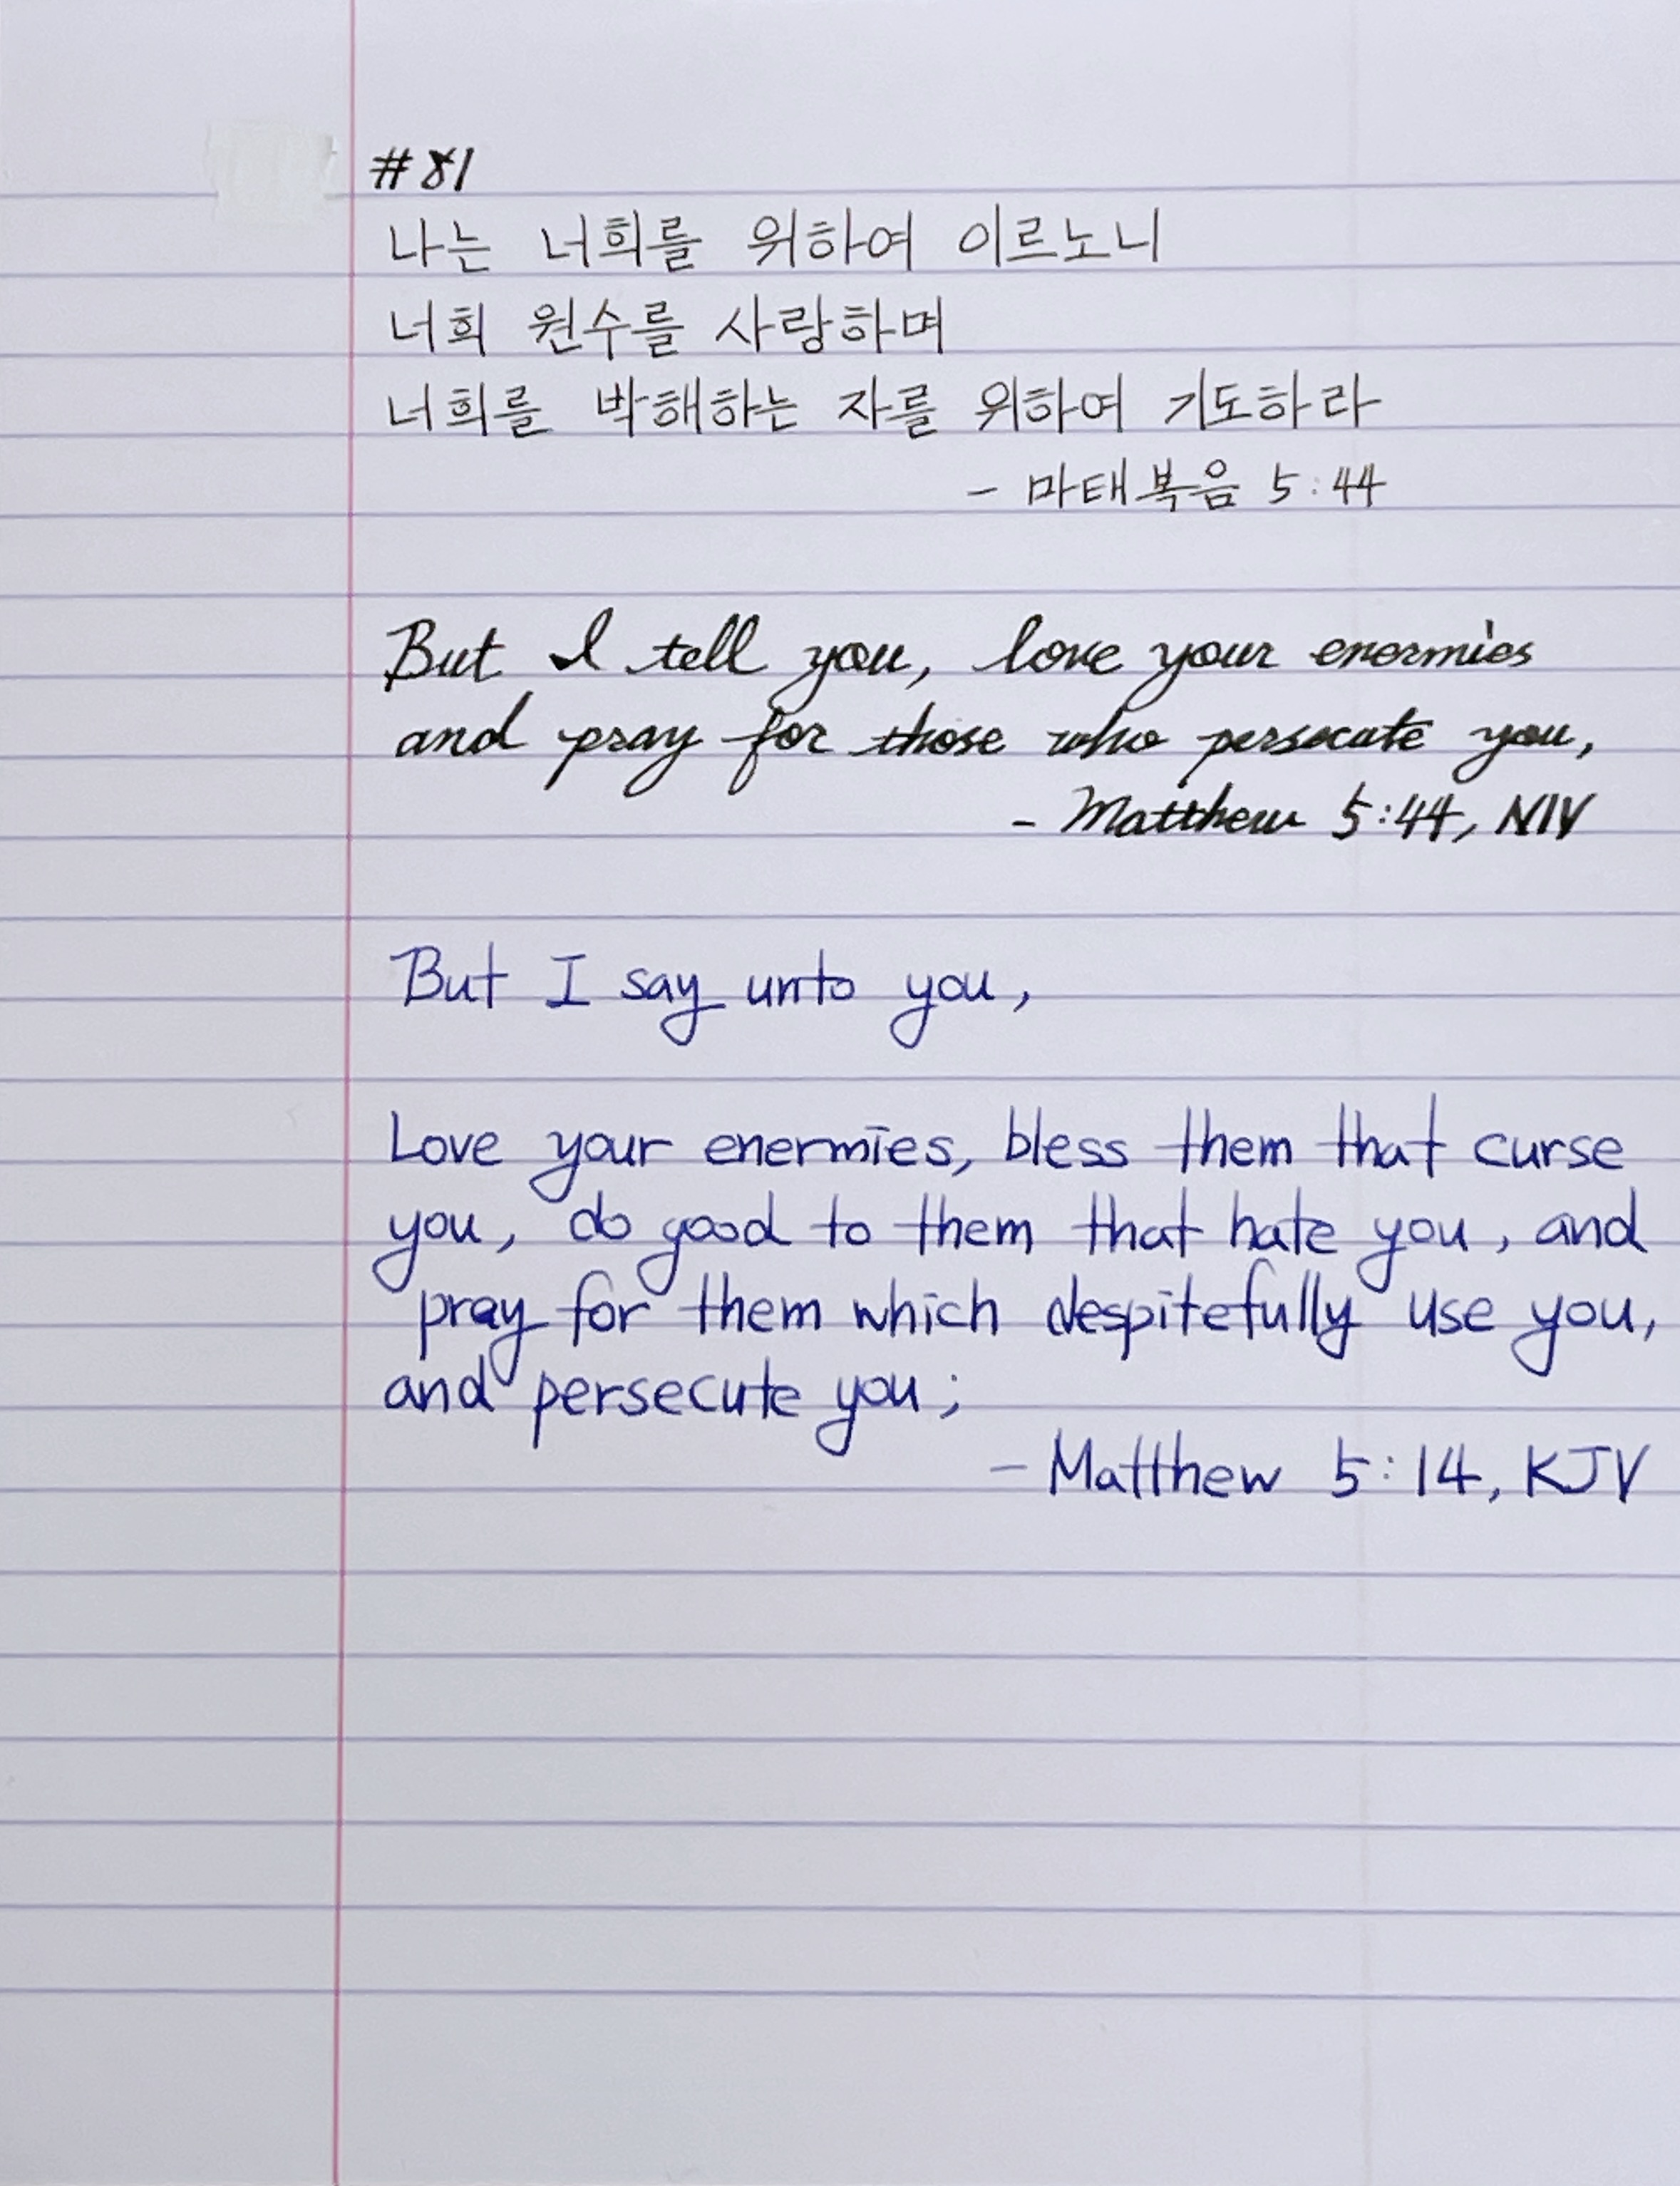 #81
나는 너희를 위하여 이르노니
너희 원수를 사랑하며
너희를 박해하는 자를 위하여 기도하라
- 마태복음 5:44
But I tell you, love your enermies
and pray for those who persecute you,
- Matthew 5:44, NIV
But I say unto you,
Love your enermies, bless them that curse
you, do good to them that hate you, and
pray for them which despitefully use you,
and persecute you;
- Matthew 5:14, KJV